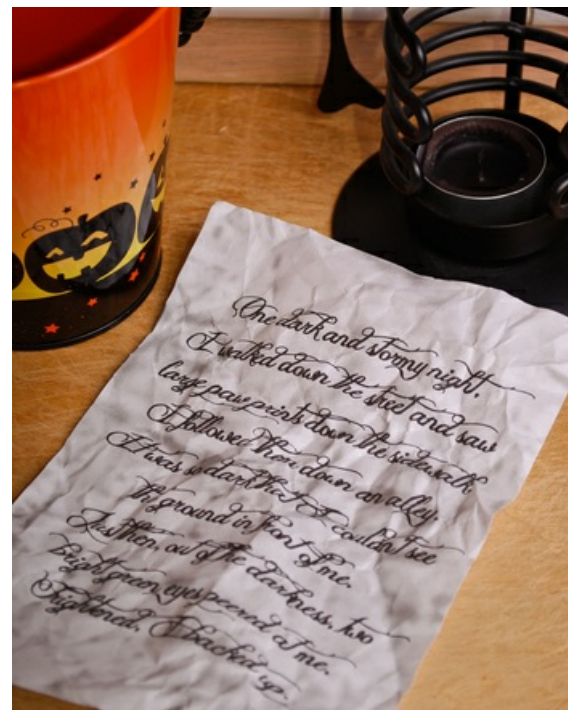 One dark and stormy night,
I walked down the street and saw
large paw prints down the sidewalk.
I followed them down an alley.
It was so dark that I couldn't see
the ground in front of me.
Just then, out of the darkness, two
bright green eyes peered at me.
Frightened, I backed up.